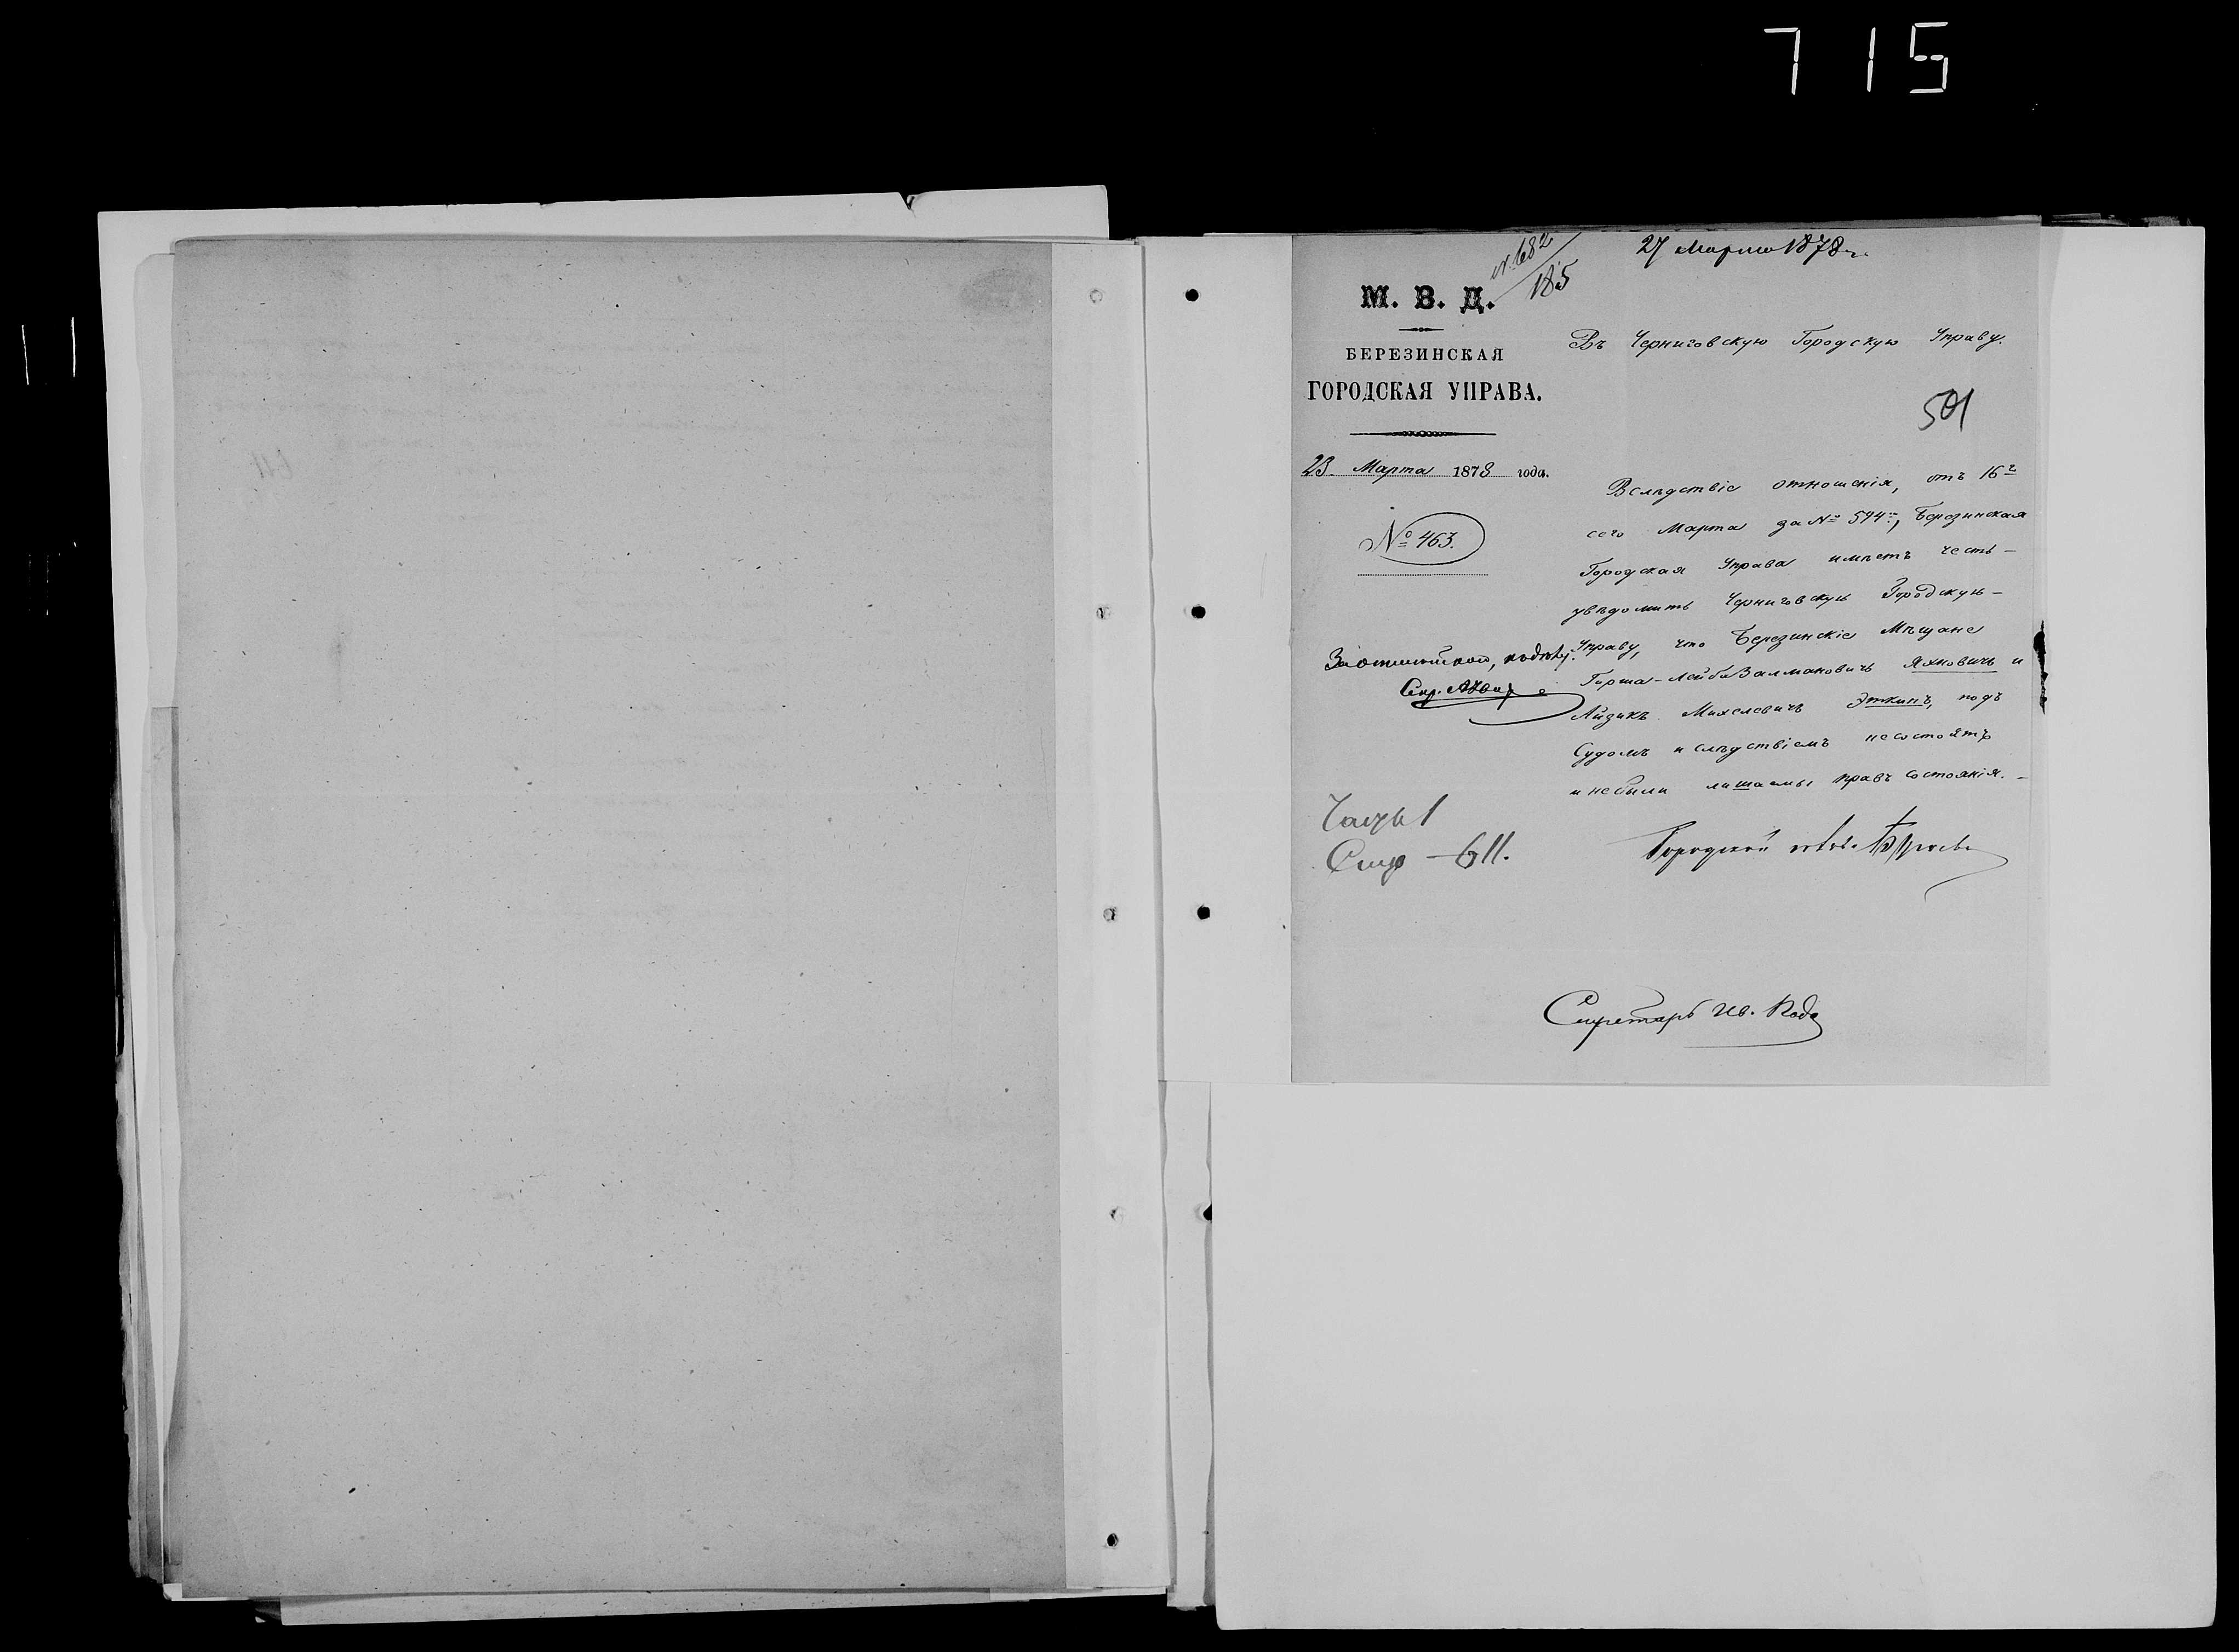 715
27 Марта 1878 г.
№ 682/185
М. В. Д.
БЕРЕЗИНСКАЯ
ГОРОДСКАЯ УПРАВА.
23 Марта 1878 года.
№ 463.
Въ Черниговскую Городскую Управу.
501
Вслѣдствіе отношенія, отъ 16г
сего Марта за № 594, Березинская
Городская Управа имѣетъ честь –
увѣдомить Черниговскую Городскую –
Управу, что Березинскіе Мѣщане
Гирша-Лейба Залмановичъ Яхновичъ и
Айзикъ Михелевичъ Эткинъ, подъ
Судомъ и слѣдствіемъ несостоятъ
и небыли лишаемы правъ состоянія. –
Городской
Секретарь Ив.
Секр.
Часть 1
Стр – 611.